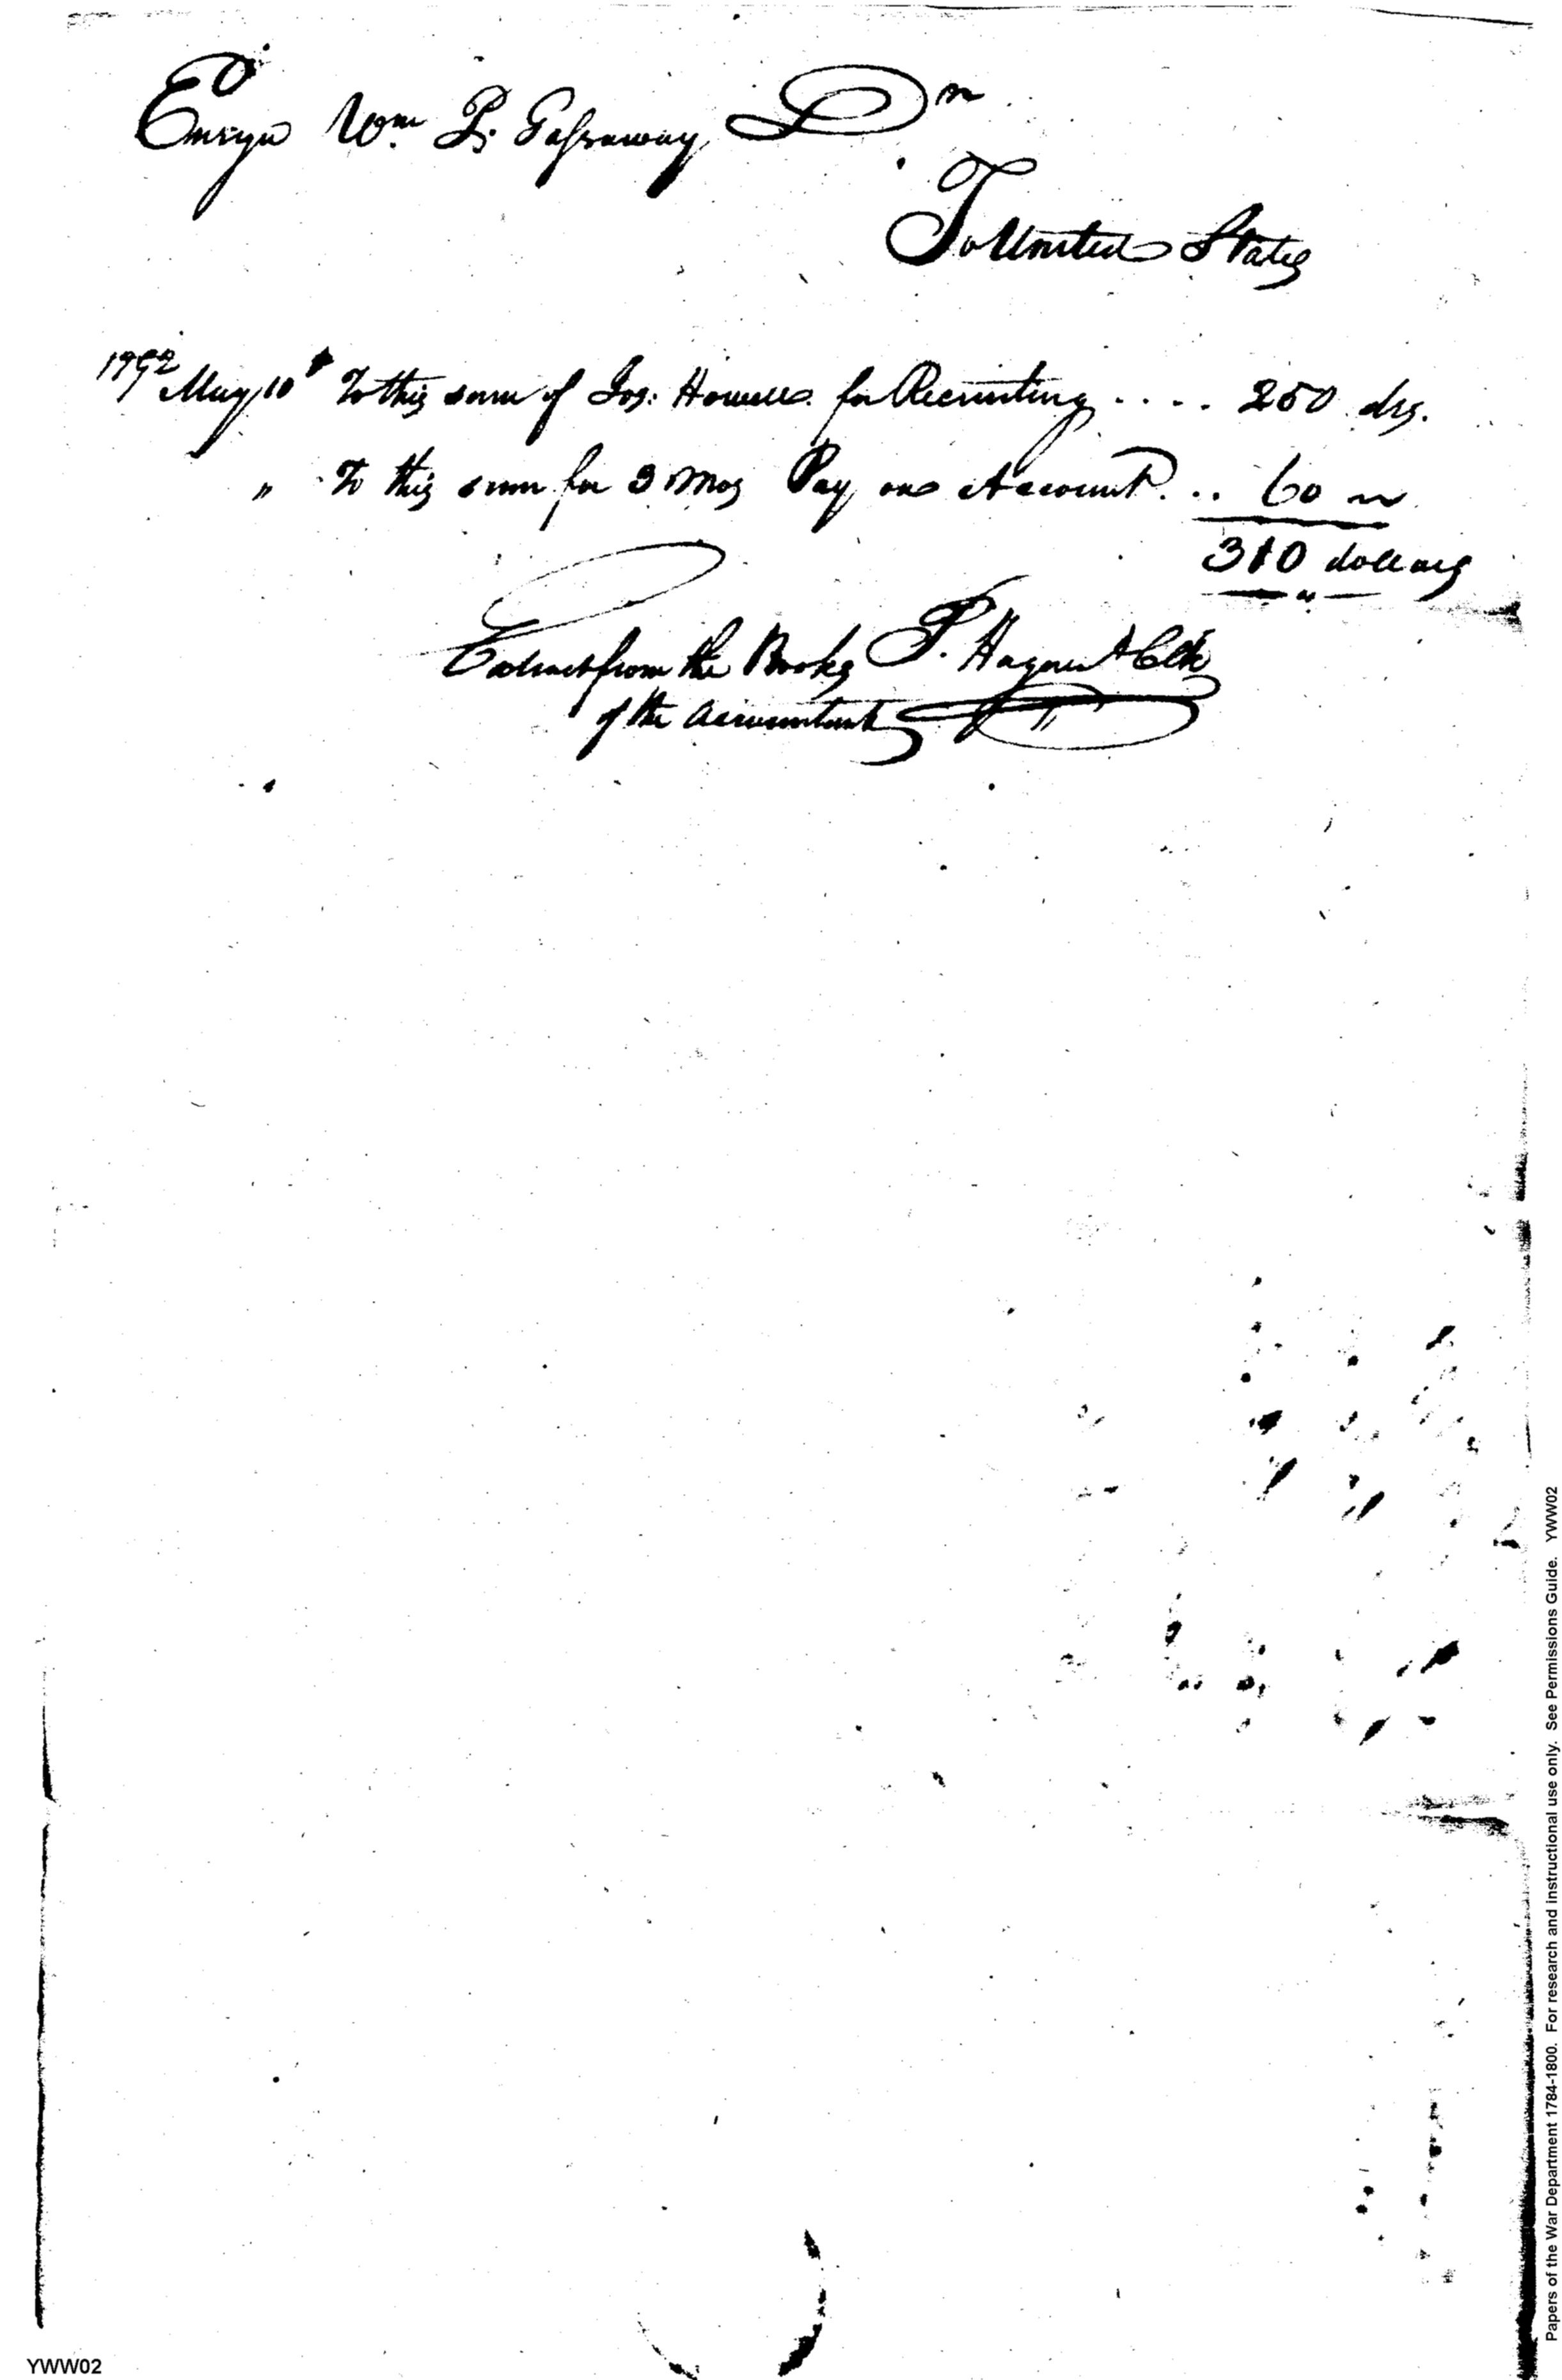 Ensign Wm P. Gassaway Dr
To United States
1792 May 10t To this sum of Jos: Howell for Recruiting .... 250 drs.
" To this sum for 3 Mos Pay on Account ... 60 "
310 dollars
Extract from the Books P. Hagner Clk
of the Accountant
Papers of the War Department 1784-1800. For research and instructional use only. See Permissions Guide. YWW02
YWW02